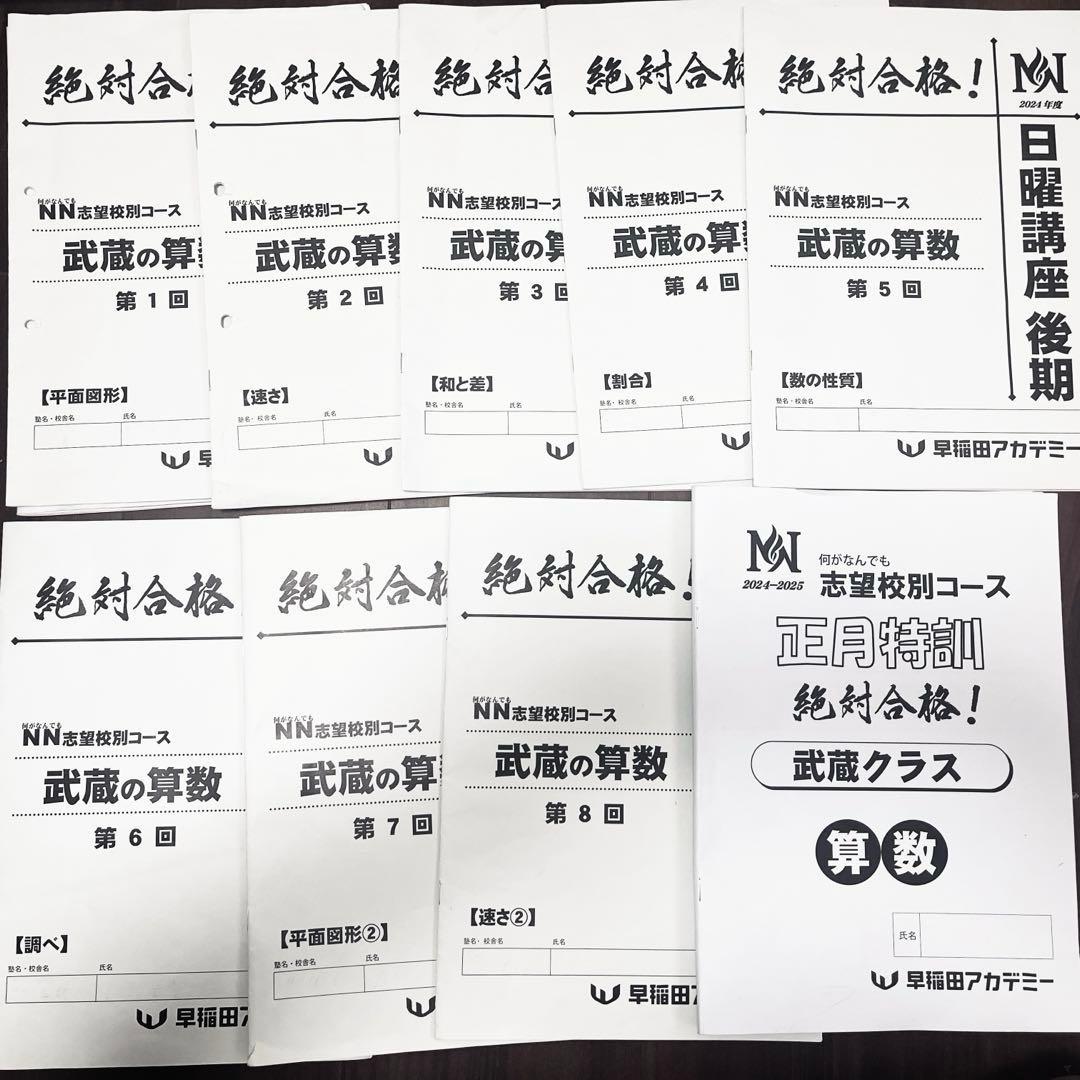 絶対合
何がなんでも
NN志望校別コース
武蔵の算
第1回
【平面図形】
塾名・校舎名 氏名
早
絶対合格
何がなんでも
NN志望校別コース
武蔵の算数
第2回
【速さ】
塾名・校舎名 氏名
絶対合
何がなんでも
NN志望校別コース
武蔵の算
第3回
【和と差】
塾名・校舎名 氏名
絶対合格
何がなんでも
NN志望校別コース
武蔵の算
第4回
【割合】
塾名・校舎名 氏名
絶対合格!
何がなんでも
NN志望校別コース
武蔵の算数
第5回
【数の性質】
塾名・校舎名 氏名
早稲田アカデミー
NN
2024年度
日曜講座 後期
絶対合格
何がなんでも
NN志望校別コース
武蔵の算数
第6回
【調べ】
塾名・校舎名 氏名
早稲田ア
絶対合格
何がなんでも
NN志望校別コース
武蔵の算
第7回
【平面図形②】
塾名・校舎名 氏名
早
絶対合格!
何がなんでも
NN志望校別コース
武蔵の算数
第8回
【速さ②】
塾名・校舎名 氏名
早稲田ア
NN
2024–2025
何がなんでも
志望校別コース
正月特訓
絶対合格!
武蔵クラス
算数
氏名
早稲田アカデミー